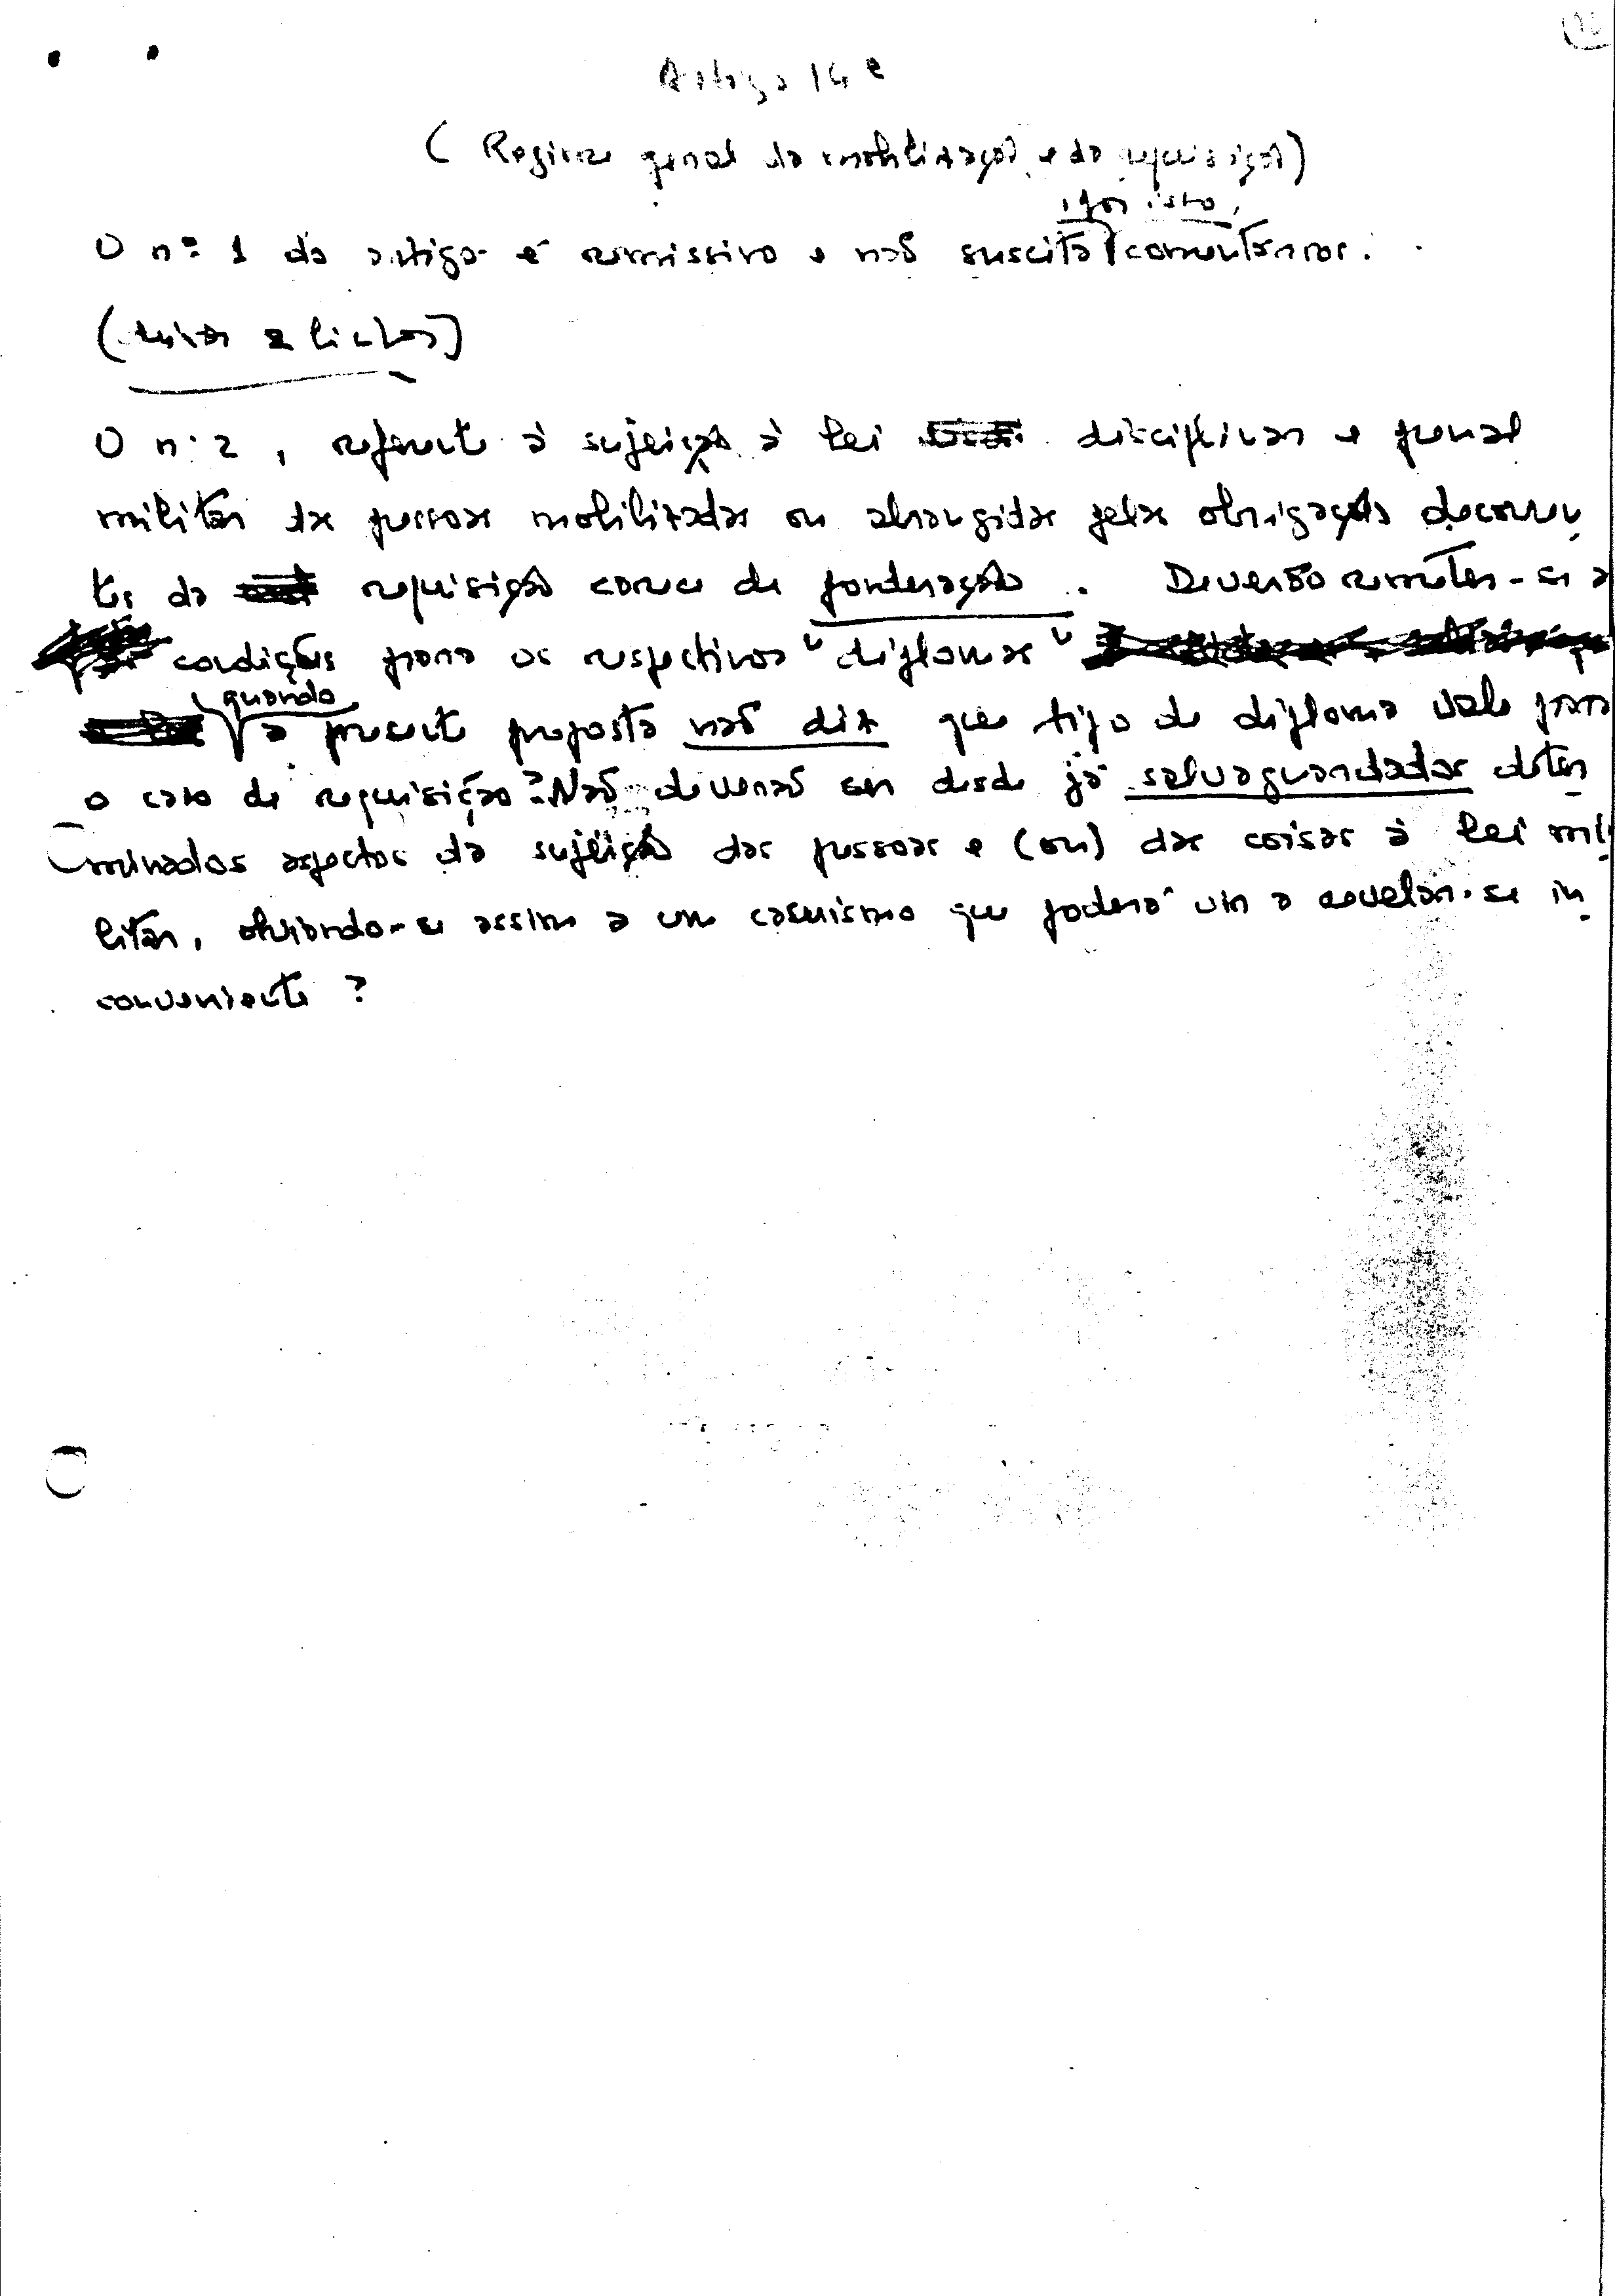 Artigo 14º
(Regime geral da mobilização e da requisição)
, por isto,
O nº 1 do artigo é remissivo e não suscita comentários.
(deixar 2 linhas)
O nº 2, referente à sujeição à lei disciplinar e penal
militar das pessoas mobilizadas ou abrangidas pelas obrigações decorren
tes da requisição carece de ponderação. Deverão remeter-se as
condições para os respectivos "diplomas"
quando
a presente proposta não diz que tipo de diploma vale para
o caso de requisição? Não deverão ser desde já salvaguardados deter
minados aspectos da sujeição das pessoas e (ou) das coisas à lei mi
litar, obviando-se assim a um casuismo que poderá vir a revelar-se in
conveniente?